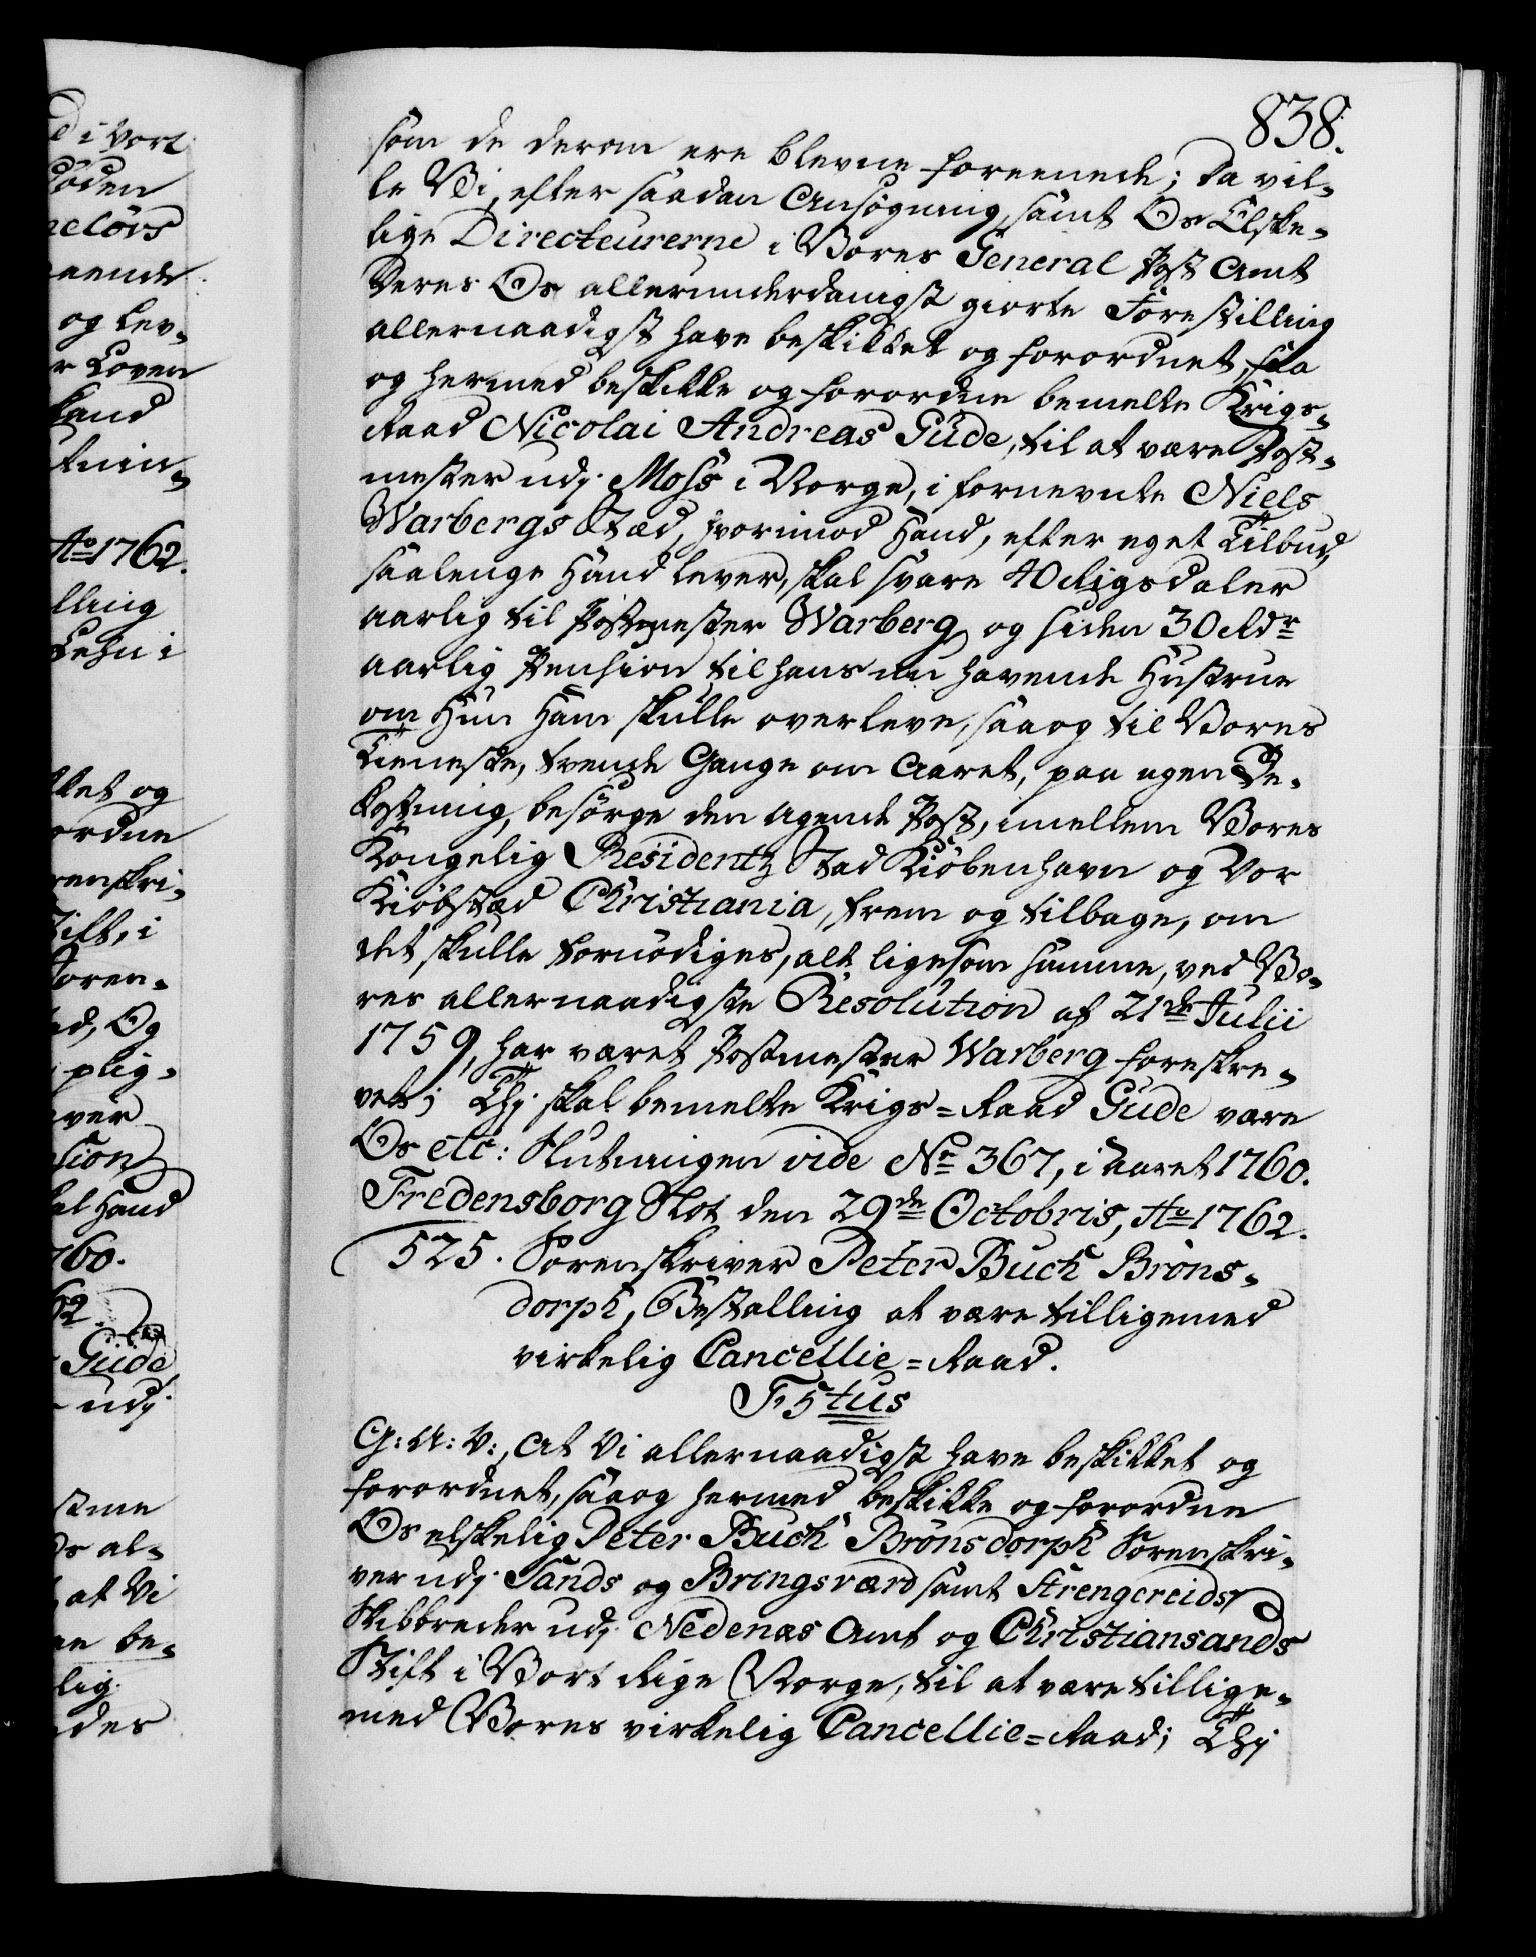 838.
som de derom ere blevne foreenede; Da vil-
le Vi, efter saadan Ansøgning, samt Os Elske-
lige Directeurerne i Vores General Post Amt
deres Os allerunderdanigst giorte Forestilling
allernaadigst have beskikket og forordnet, saa
og hermed beskikke og forordne bemelte Krigs-
Raad Nicolai Andreas Güde, til at være Post-
mester udj Moss i Norge, i fornevnte Niels
Warbergs Stæd, hvorimod Hand, efter eget Tilbud,
saalenge Hand lever, skal svare 40 Rigsdaler
aarlig til Postmester Warberg og siden 30 Rdr
aarlig Pension til hans nu havende Hustrue
om Hun Ham skulle overleve, saa og til Vores
Tieneste, tvende Gange om Aaret, paa egen Be-
kostning, besørge den agende Post, imellem Vores
Kongelig Residentz Stad Kiöbenhavn og Vor
Kiöbstæd Christiania, frem og tilbage, om
det skulle fornödiges, alt ligesom samme, ved Vo-
res allernaadigste Resolution af 21de Julii
1759, har været Postmester Warberg foreskre-
vet; Thj skal bemelte Krigs=Raad Güde være
Os etc: Slutningen vide No 367, i Aaret 1760.
Fredensborg Slot den 29de Octobris, Ao 1762.
525. Sorenskriver Peter Buch Bröns-
dorph, Bestalling at være tilligemed
virkelig Cancellie=Raad.
F 5tus
G: A: V:, At Vi allernaadigst have beskikket og
forordnet, saa og hermed beskikke og forordne
Os elskelig Peter Buch Brönsdorph Sorenskri-
ver udj Sands og Bringsværd samt Strengereids
Skibbreder udj Nedenæs Amt og Christiansands
Stift i Vort Rige Norge, til at være tillige-
med Vores virkelig Cancellie=Raad; Thj